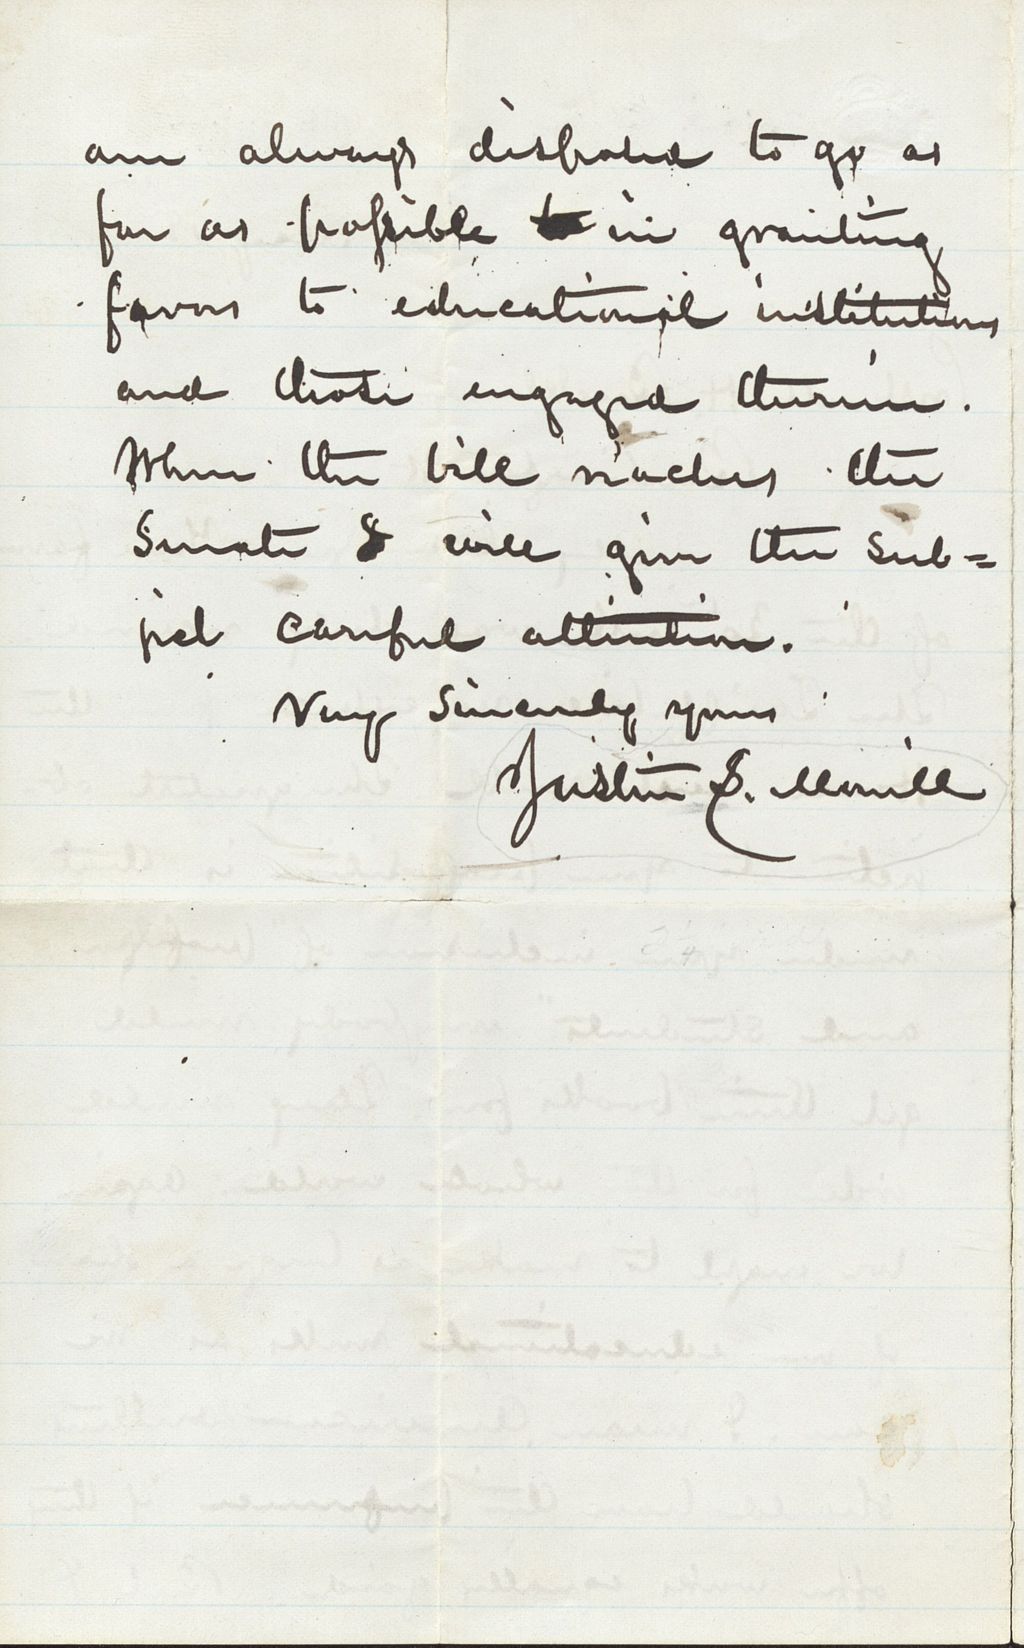 am always disposed to go as
far as possible in granting
favors to educational institutions
and those engaged therein.
When the bill reaches the
Senate I will give the sub=
ject careful attention.
Very Sincerely yours
Justin S. Morrill